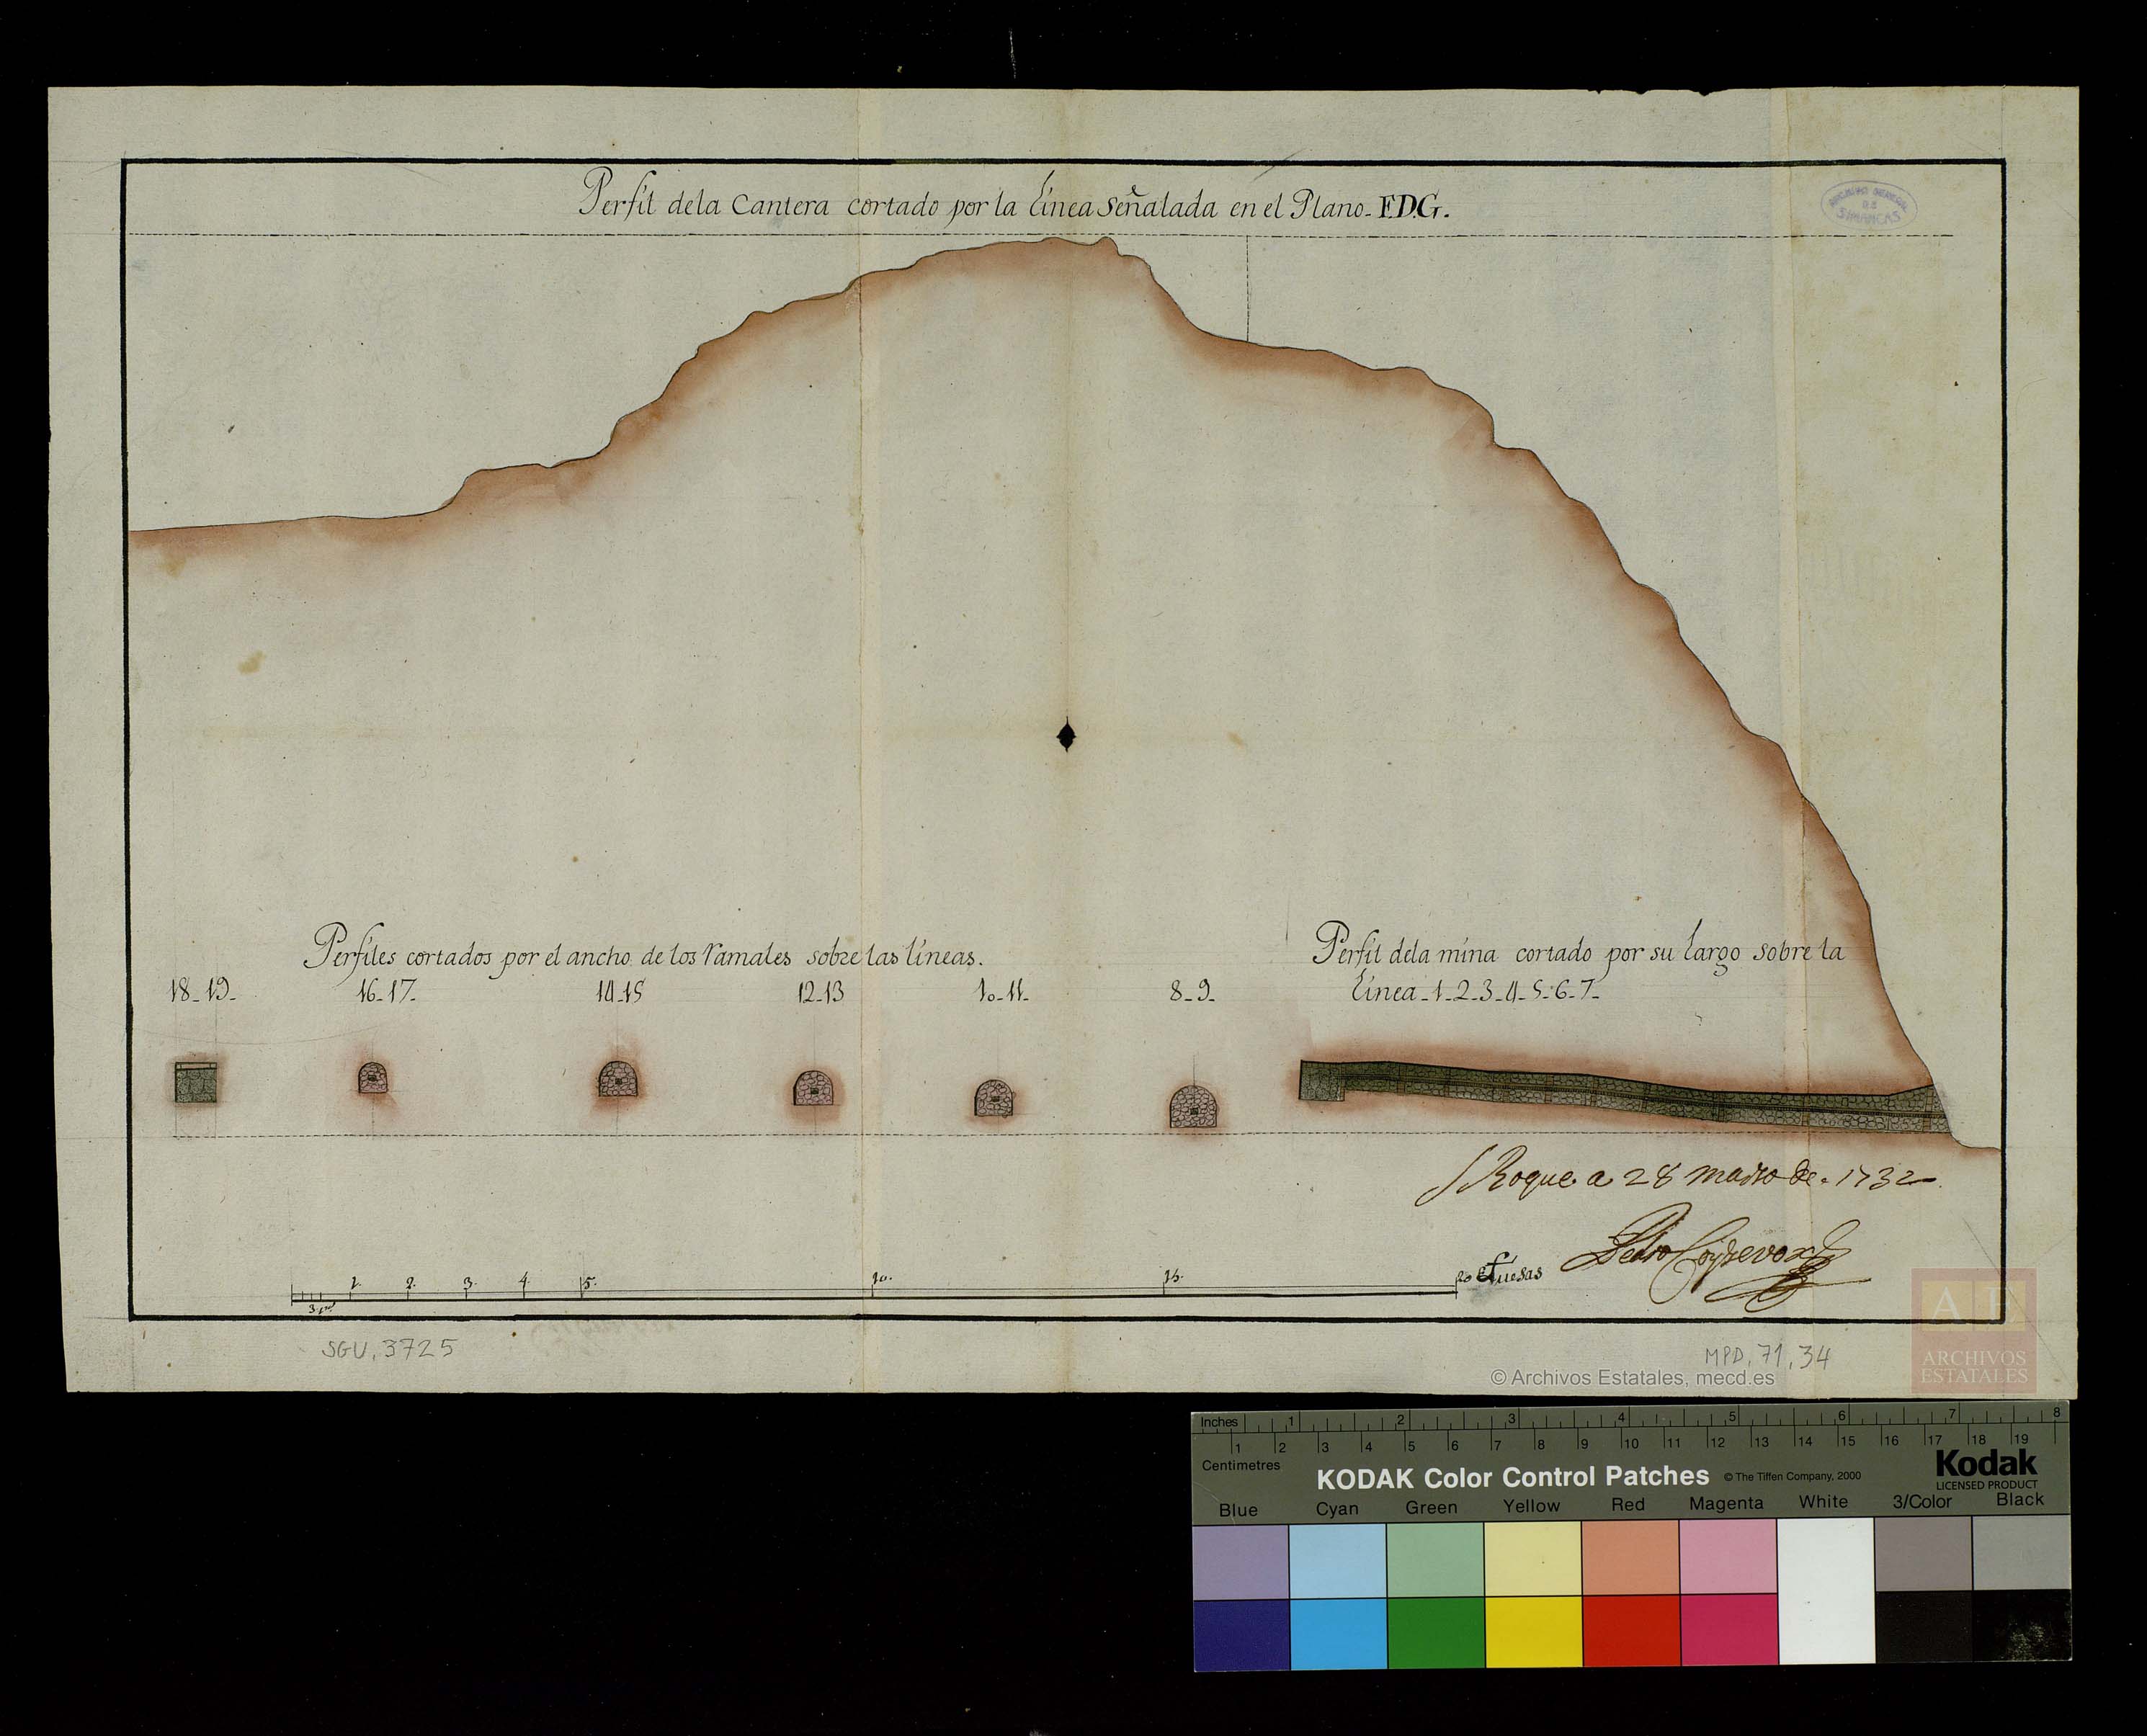 Perfil dela Cantera cortado por la Linea Señalada en el Plano. F.D.G.
ARCHIVO GENERAL
DE
SIMANCAS
Perfiles cortados por el ancho de los ramales sobre las lineas.
18-19- 16-17- 14-15 12-13 10-11- 8-9-
Perfil dela mina cortado por su largo sobre la
Linea-1-2-3-4-5-6-7-
S Roque a 28 marzo de 1732
Pedro
1. 2. 3. 4. 5. 10. 15. 20 Tuesas
SGU, 3725
MPD, 71, 34
© Archivos Estatales, mecd.es
AE
ARCHIVOS
ESTATALES
Inches 1 2 3 4 5 6 7 8
1 2 3 4 5 6 7 8 9 10 11 12 13 14 15 16 17 18 19
Centimetres
KODAK Color Control Patches © The Tiffen Company, 2000
Kodak
LICENSED PRODUCT
Blue Cyan Green Yellow Red Magenta White 3/Color Black